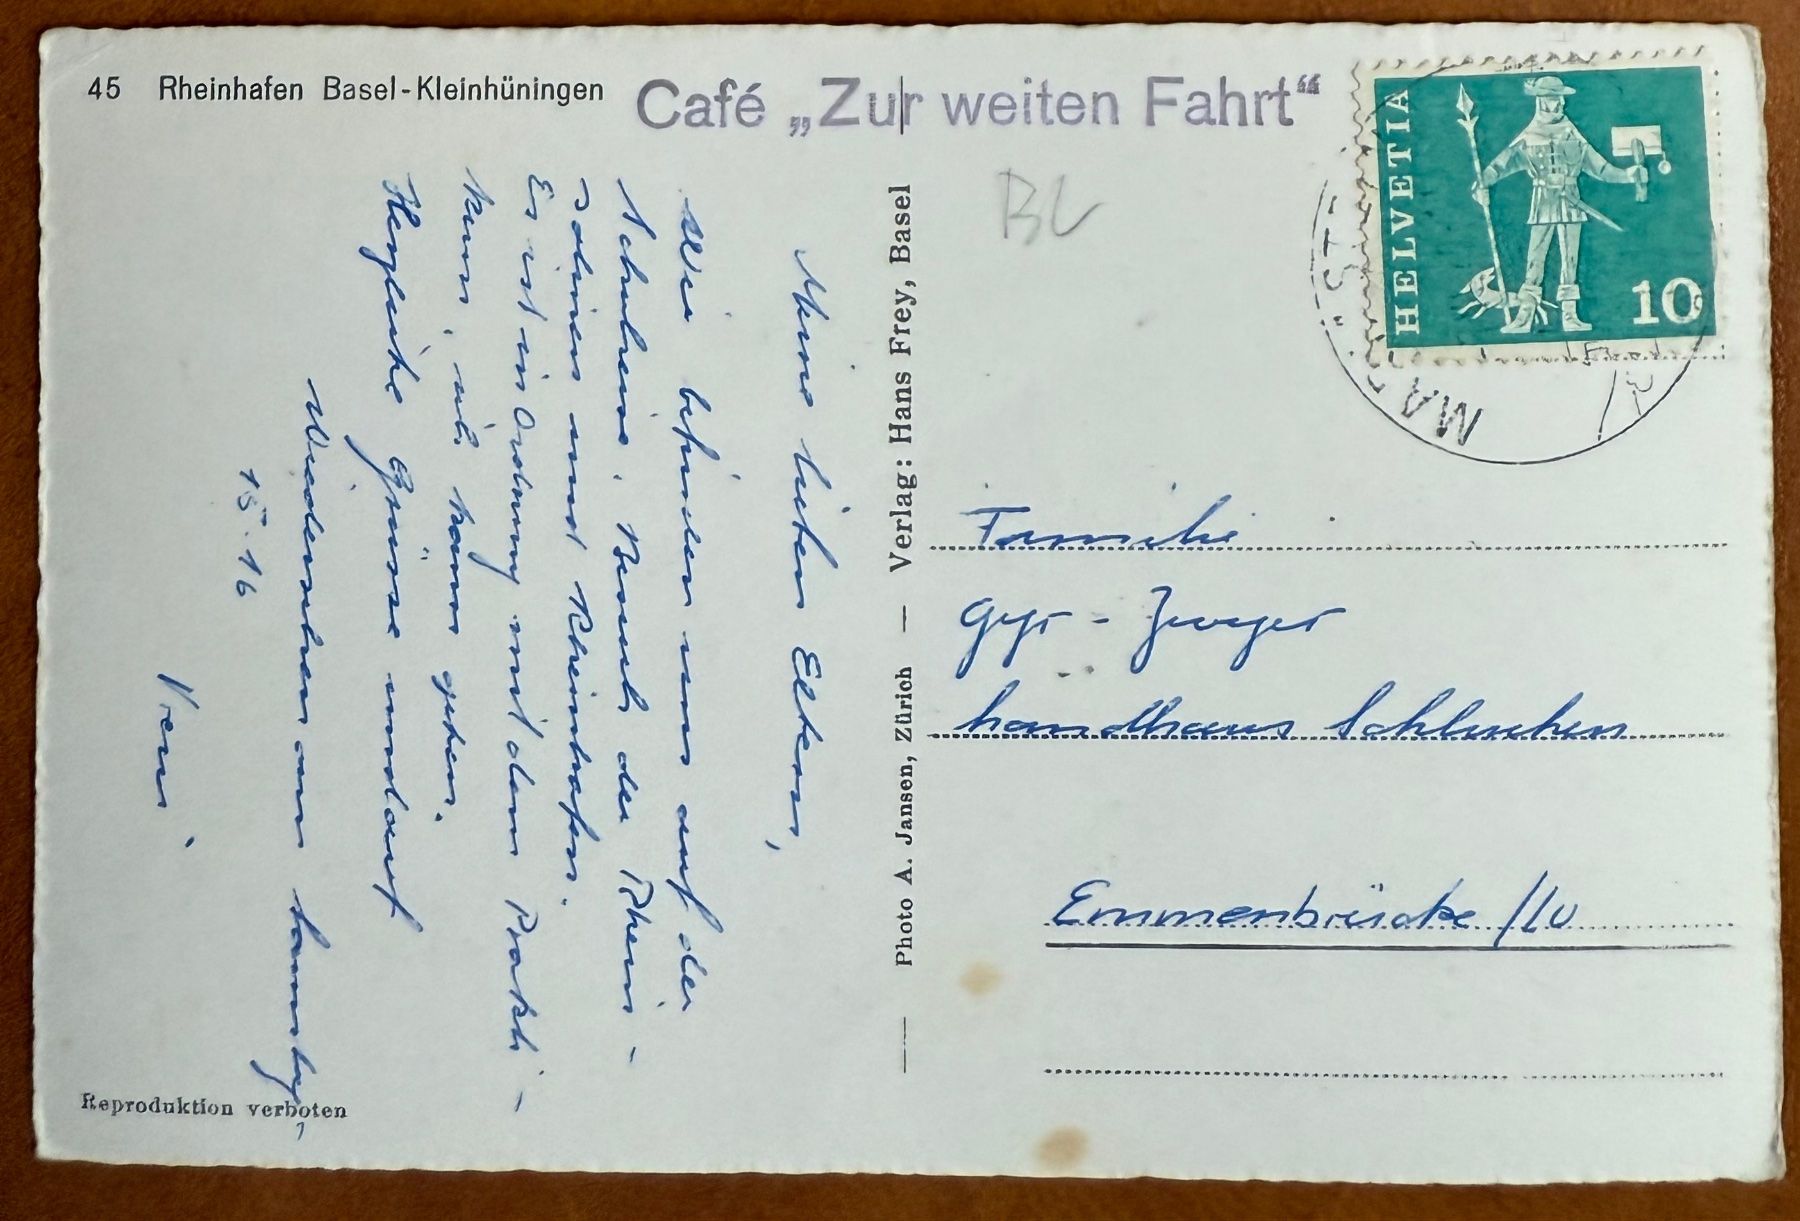 45 Rheinhafen Basel-Kleinhüningen
Café „Zur weiten Fahrt“
HELVETIA
10
BL
Meine lieben Eltern,
Wir befinden uns auf der
Schulreise. Besuch der Rhein-
salinen und Rheinhafen.
Es ist in Ordnung mit dem Prakti-
kum, ich kann gehen.
Herzliche Grüsse und auf
Wiedersehen am Samstag,
15.16
Vreni
Verlag: Hans Frey, Basel
Photo A. Jansen, Zürich
Familie
Gysr - Zwyer
Landhaus Schluchen
Emmenbrücke /LU
Reproduktion verboten